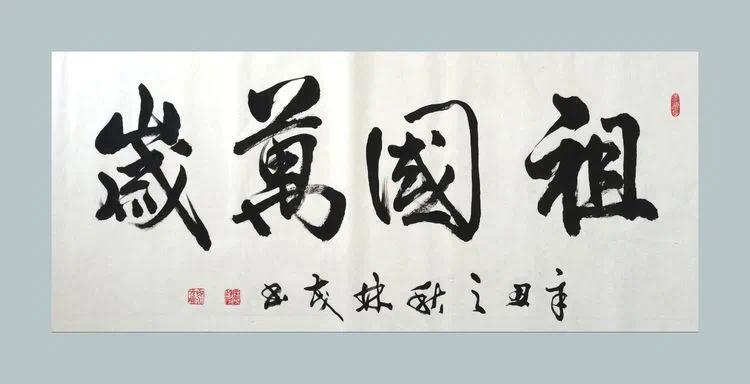 祖國萬歲
辛丑之秋林茂书